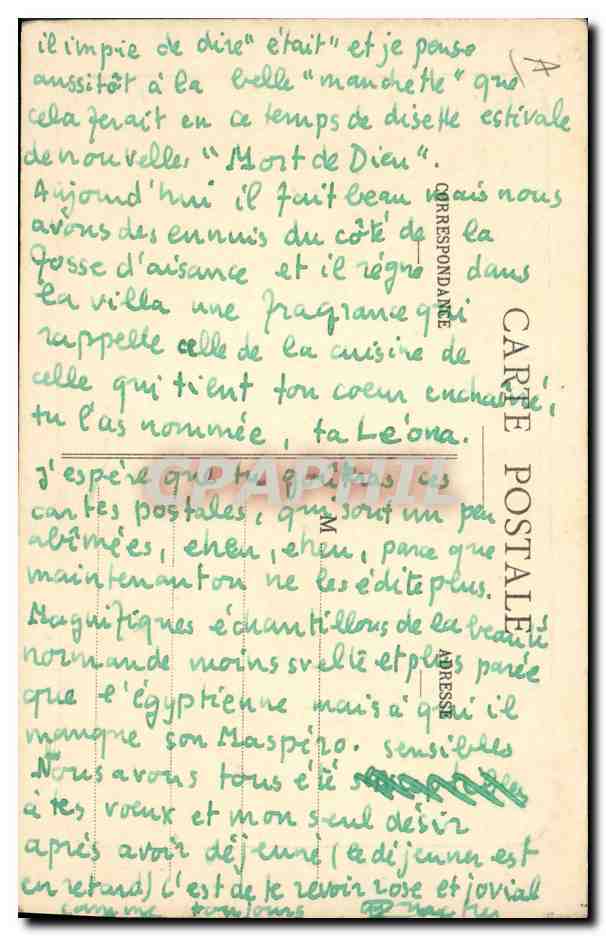 il impie de dire "était" et je pense
aussitôt à la belle "manchette" que
cela ferait en ce temps de disette estivale
de nouvelles "Mort de Dieu".
Aujourd'hui il fait beau mais nous
avons des ennuis du côté de la
fosse d'aisance et il règne dans
la villa une fragrance qui
rappelle celle de la cuisine de
celle qui tient ton coeur enchaîné,
tu l'as nommée, ta Léona.
J'espère que tu goûtras ces
cartes postales, qui sont un peu
abîmées, eheu, eheu, parce que
maintenant on ne les édite plus.
Magnifiques échantillons de la beauté
normande moins svelte et plus parée
que l'égyptienne mais à qui il
manque son Maspéro. sensibles
Nous avons tous été
à tes voeux et mon seul désir
après avoir déjeuné (le déjeuner est
en retard) c'est de te revoir rose et jovial
comme toujours
A
CORRESPONDANCE
CARTE POSTALE
M
ADRESSE
CPAPHIL